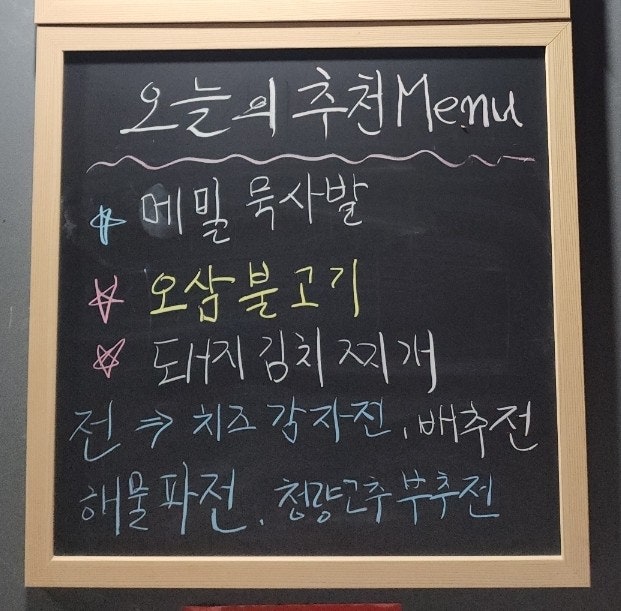 오늘의 추천 Menu
메밀 묵사발
오삼불고기
돼지김치찌개
전 ⇒ 치즈감자전, 배추전
해물파전, 청량고추부추전